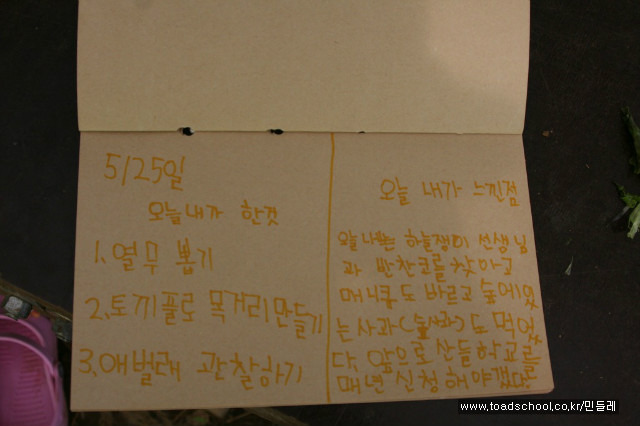 5/25일
오늘 내가 한것
1. 열무 뽑기
2. 토끼플로 목거리 만들기
3. 애벌래 관찰하기
오늘 내가 느낀점
오늘 나는 하늘쟁이 선생님
과 반찬코를 찾아고
매니큐도 바르고 숲에있
는 사과(숲사과)도 먹었
다, 앞으로 산들학교를
매년 신청해야겠다
www.toadschool.co.kr/민들레